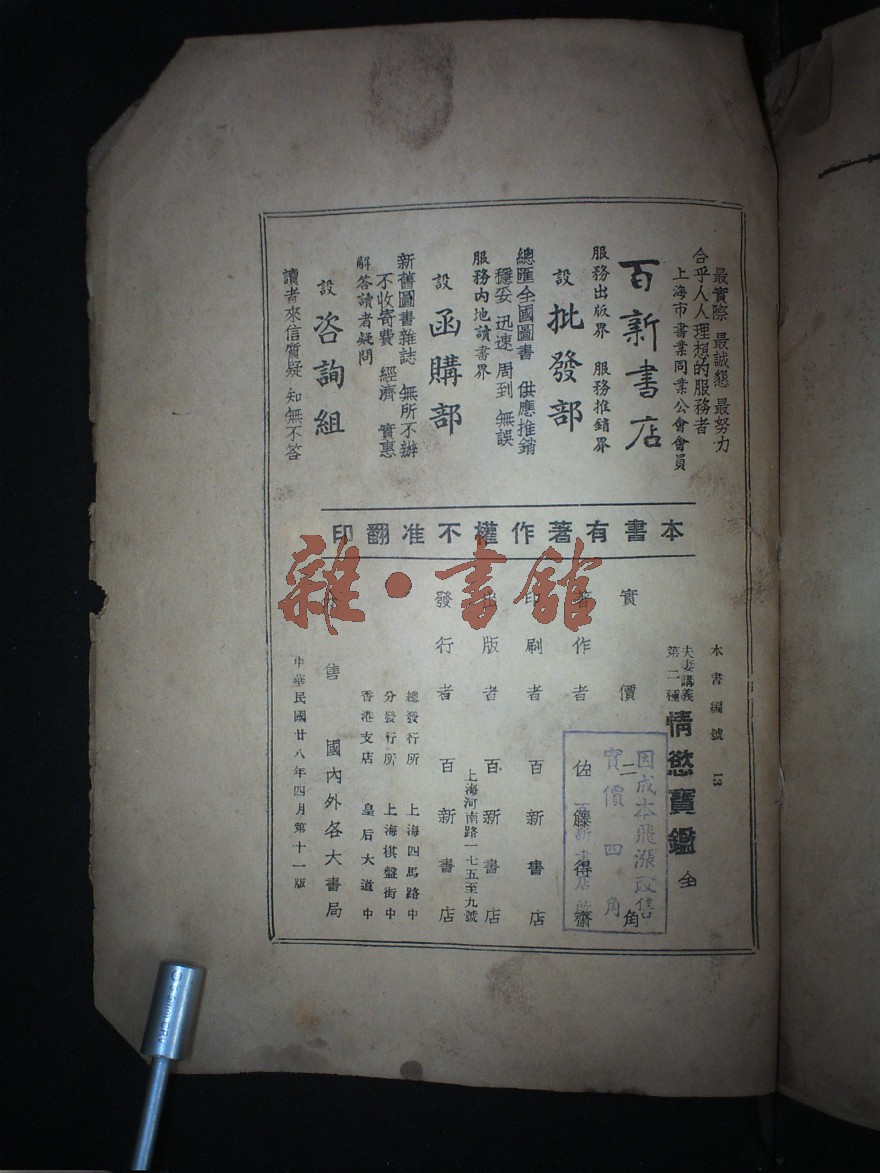 最實際 最誠懇 最努力
合乎人人理想的服務者
上海市書業同業公會會員
百新書店
服務出版界 服務推銷界
設 批發部
總匯全國圖書 供應推銷
穩妥 迅速 周到 無誤
服務內地讀書界
設 函購部
新舊圖書雜誌 無所不辦
不收寄費 經濟 實惠
解答讀者疑問
設 咨詢組
讀者來信質疑 知無不答
本書有著作權不准翻印
本書編號 13
夫妻講義
第二種
情慾寶鑑 全
實價 二角
因成本飛漲改售
實價四角
百新書店啟
著作者 佐藤得齋
印刷者 百新書店
出版者 百新書店
上海河南路一七五至九號
發行者 百新書店
總發行所 上海四馬路中
分發行所 上海棋盤街中
香港支店 皇后大道中
售 國內外各大書局
中華民國廿八年四月第十一版
雜·書館